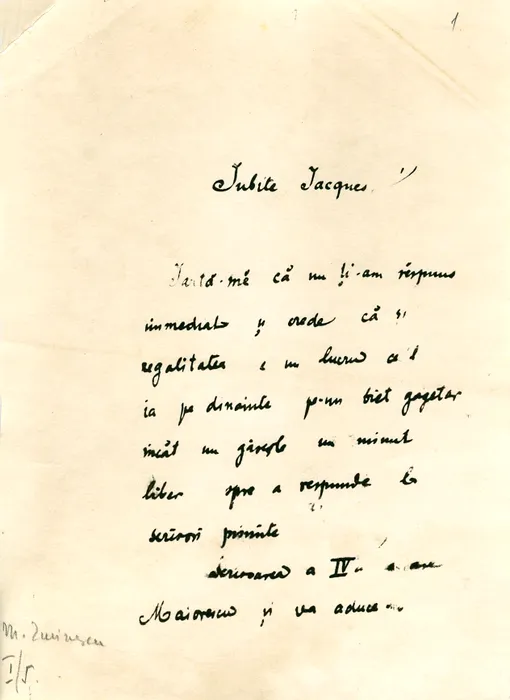 1.
Iubite Jacques,
Iartă-mĕ că nu ți-am rĕspuns
immediat și crede că și
regalitatea e un lucru ce'l
ia pe dinainte pe-un biet gazetar
încât nu găsește un minut
liber spre a respunde la
scrisori primite
Scrisoarea a IV a o are
Maiorescu și va aduce
M. Eminescu
I/5.